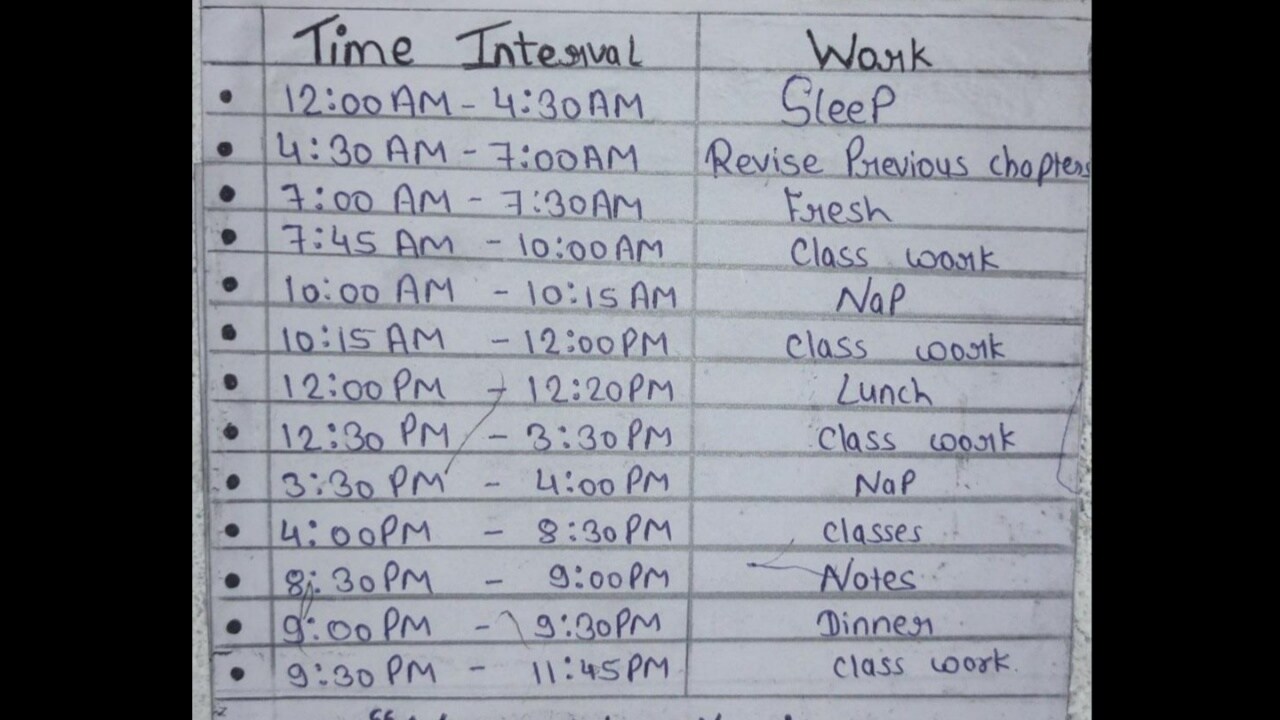 Time Interval Work
• 12:00 AM - 4:30 AM Sleep
• 4:30 AM - 7:00 AM Revise Previous chapters
• 7:00 AM - 7:30 AM Fresh
• 7:45 AM - 10:00 AM Class work
• 10:00 AM - 10:15 AM Nap
• 10:15 AM - 12:00 PM Class work
• 12:00 PM - 12:20 PM Lunch
• 12:30 PM - 3:30 PM Class work
• 3:30 PM - 4:00 PM Nap
• 4:00 PM - 8:30 PM Classes
• 8:30 PM - 9:00 PM Notes
• 9:00 PM - 9:30 PM Dinner
• 9:30 PM - 11:45 PM Class work.